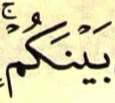 بَيْنَكُمْ ۚ